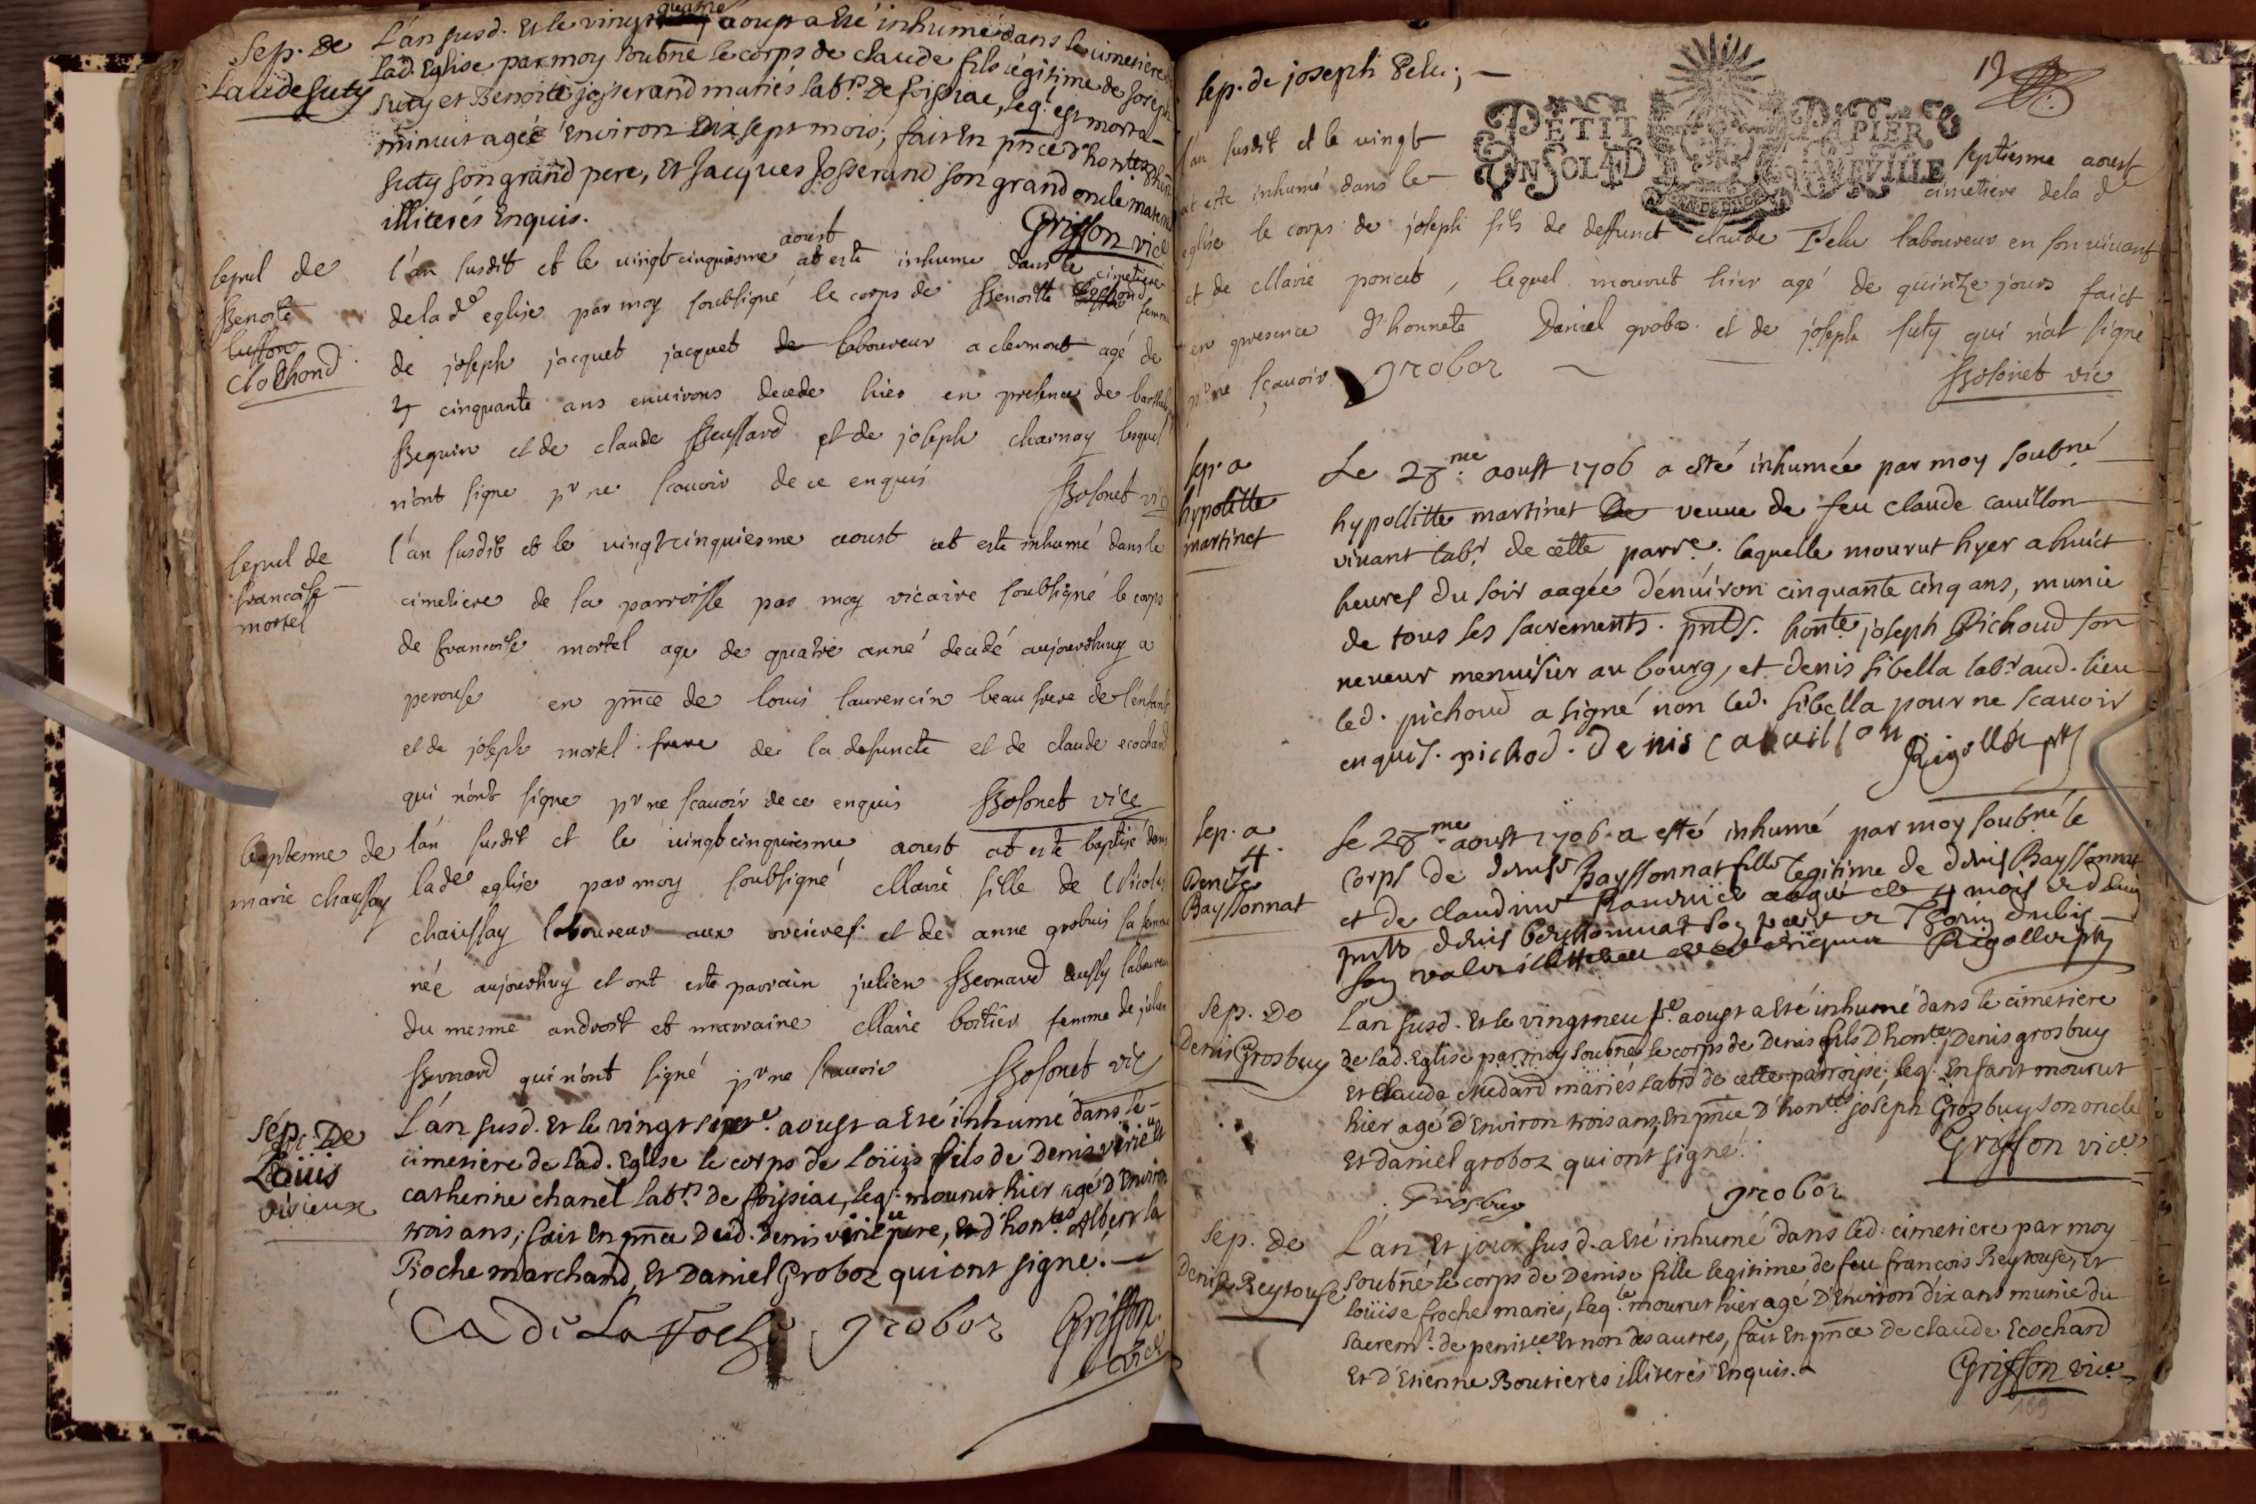 Sep. De
Claude Suty
L'an susd. Et le vingt quatre aoust a Eté inhumé dans le cimetiere
Lad. Eglise par moy soubné le corps de claude fils légitime de Joseph
Suty et Benoite josserand mariés labrs De foissiac, leq. est mort a
minuit agée Environ Dix sept mois; fait En pnce d'honte
Suty son grand pere, Et Jacques Josserand son grand oncle maternel
illiterés Enquis.
Griffon vice
sepul de
Benoite
Clochond
l'an susdit et le vingt cinquiesme aoust at esté inhumé dans le cimetiere
de la de eglise par moy soubsigné le corps de Benoitte Clochond femme
de joseph jacquet jacquet de laboureur a clermont agé de
cinquante ans environs decede hier en presence de
Beguin et de claude Broussard et de joseph charnay lesquel
n'ont signe pr ne scavoir de ce enquis
Bolonet vic
sepul de
francoise
mortel
l'an susdit et le vingt cinquiesme aoust at esté inhumé dans le
cimetiere de la parroisse par moy vicaire soubsigné le corps
de francoise mortel age de quatre anné decedé aujourdhuy a
perouse en pnce de louis laurencin beau frere de l'enfant
et de joseph mortel frere de la defuncte et de claude ecochard
qui n'ont signe pr ne scavoir de ce enquis Bolonet vice
baptesme de
marie chaussay
l'an susdit et le vingt cinquiesme aoust at esté baptisé dans
lade eglise par moy soubsigné Marie fille de Nicolas
chaussay laboureur aux orcieres et de anne grobuis sa femme
née aujourdhuy et ont esté parrain julien Bernard aussy laboureur
du mesme androit et marraine Marie bortier femme de julien
Bernard qui n'ont signé pr ne scavoir Bolonet vic
Sép. De
Loüis
virieux
L'an susd. Et le vingt sixe. aoust a Eté inhumé dans le
cimetiere de Lad. Eglise le corps de Loüis fils de Denis virieu et
catherine chanel labrs de foissiac, leq. mourut hier agé d'Environ
trois ans; fait En pnce Dud. Denis virieu pere, Et d'hontes Albert la
Roche marchand, Et Daniel Groboz qui ont signe.
A De La Roche groboz Griffon
vice
sep. de joseph Pelu;
13
PETIT PAPIER
UN SOL 4 D LA FEUILLE
l'an susdit et le vingt septiesme aoust
at esté inhumé dans le cimetiere de la de
eglise le corps de joseph fils de deffunct claude Pelu laboureur en son vivant
et de Marie poncet, lequel mourut hier agé de quinze jours faict
en presence d'honnete Daniel groboz et de joseph suty qui n'at signé
pr ne scavoir groboz
Bolonet vic
sep. a
hypolitte
martinet
Le 28me aoust 1706 a esté inhumée par moy soubné
hypollitte martinet veuve de feu claude cavillon
vivant labr de cette parre. laquelle mourut hyer a huict
heures du soir aagée d'enuiron cinquante cinq ans, munie
de tous les sacrements. pnts. honte joseph Pichoud son
neveux menuisier au bourg, et denis sibella labr aud. lieu
led. pichoud a signé non led. sibella pour ne scavoir
enquis. pichod. denis cavillon Rigollet ptr
sep. a
Denise
Bayssonnat
Le 28me aoust 1706 a esté inhumé par moy soubné le
corps de denise Bayssonnat fille legitime de denis Bayssonnat
et de claudine aagée de 4 mois
pnts denis bayssonnat son pere
Rigollet ptr
Sep. De
Denis Grosbuy
L'an susd. Et le vingt neufe. aoust a Eté inhumé dans le cimetiere
de lad. Eglise par moy soubné le corps de Denis fils D'honte, Denis grosbuy
Et claude Medard mariés labrs de cette parroisse, leq. Enfant mourut
hier agé d'Environ trois ans, En pnce d'hontes joseph Grosbuy son oncle
Et daniel groboz qui ont signé.
Griffon vice
Grosbuy groboz
Sep. De
Denise Reytouse
L'an Et jour susd. a Eté inhumé dans led. cimetiere par moy
soubné le corps de Denise fille legitime de feu francois Reytouse, Et
loüise froche mariés, leq.le mourut hier agé D'Environ dix ans munie du
sacremt de penitce Et non des autres, fait En pnce de claude Ecochard
Et d'Etienne Boutieres illiterés Enquis.
Griffon vice
169